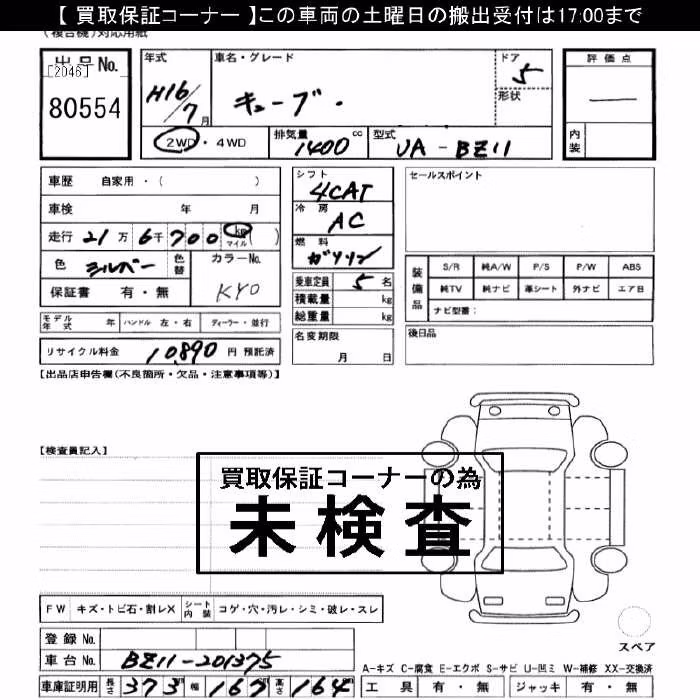 【 買取保証コーナー 】この車両の土曜日の搬出受付は17:00まで
(複合機)対応用紙
出品No.
[2046]
80554
年式
H16/7月
車名・グレード
キューブ.
ドア
5
形状
評価点
内装
2WD・4WD
排気量
1400cc
型式
UA-BZ11
車歴 自家用・( )
車検 年 月
走行 21万6千700 km マイル ( )
色 シルバー 色替
カラーNo.
KY0
保証書 有・無
シフト
4CAT
冷房
AC
燃料
ガソリン
乗車定員 5名
積載量 kg
総重量 kg
名変期限
月 日
セールスポイント
装備品
S/R 純A/W P/S P/W ABS
純TV 純ナビ 革シート 外ナビ エア日
ナビ型番:
後日品
モデル年式 年 ハンドル 左・右 ディーラー・並行
リサイクル料金 10,890 円 預託済
【出品店申告欄(不良箇所・欠品・注意事項等)】
【検査員記入】
買取保証コーナーの為
未検査
FW キズ・トビ石・割レX シート内装 コゲ・穴・汚レ・シミ・破レ・スレ
登録 No.
車台 No. BZ11-201375
車庫証明用 長さ 373 幅 167 高さ 164cm
スペア
A-キズ C-腐食 E-エクボ S-サビ U-凹ミ W-補修 XX-交換済
工具 有・無 ジャッキ 有・無